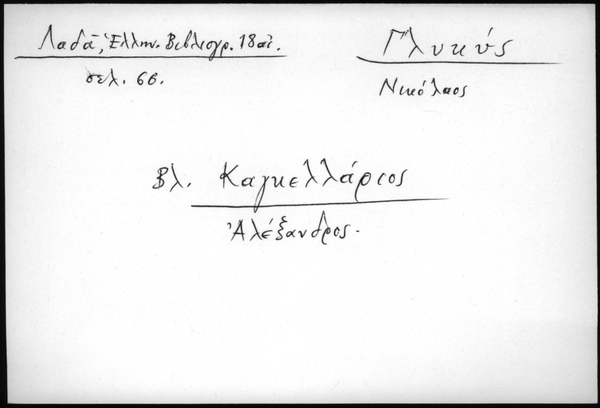 Λαδᾶ, Ἑλλην. Βιβλιογρ. 18 αἰ.
σελ. 66.
Γλυκύς
Νικόλαος
Βλ. Καγκελλάριος
Ἀλέξανδρος.